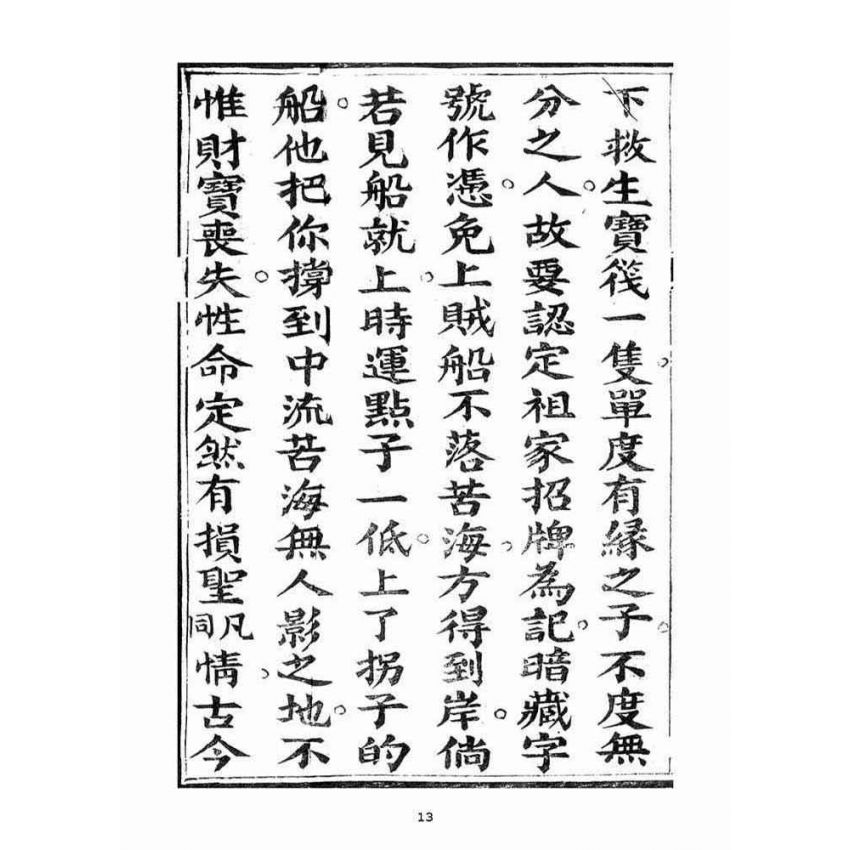 下救生寶筏一隻單度有緣之子不度無
分之人故要認定祖家招牌為記暗藏字
號作憑免上賊船不落苦海方得到岸倘
若見船就上時運點子一低上了拐子的
船他把你撐到中流苦海無人影之地不
惟財寶喪失性命定然有損聖凡同情古今
13